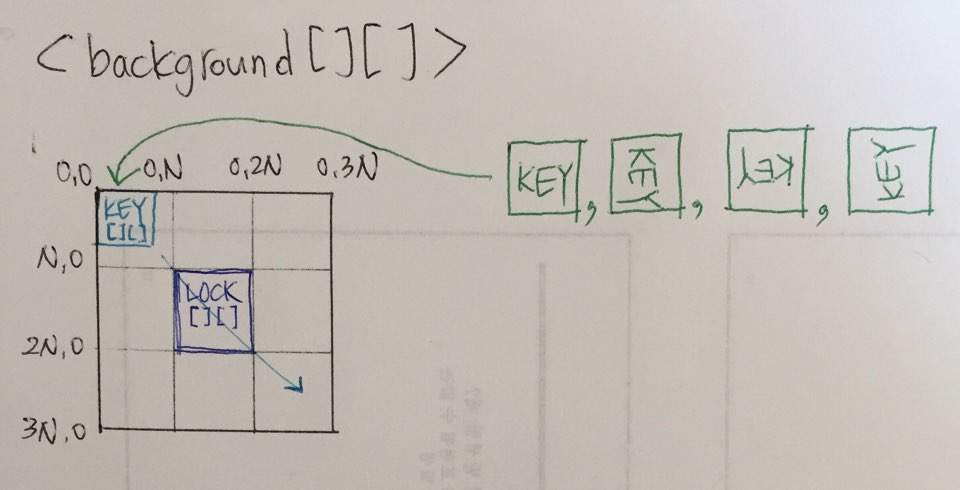 <background[][]>
0,0 0,N 0,2N 0,3N
KEY, KEY, KEY, KEY
KEY
[][]
N,0
LOCK
[][]
2N,0
3N,0